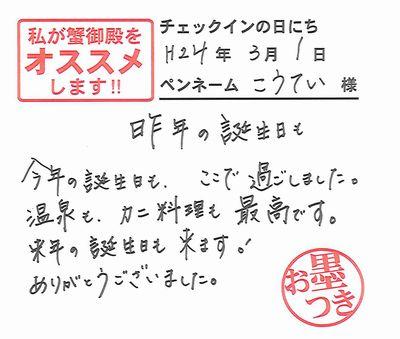 私が蟹御殿を
オススメ
します!!
チェックインの日にち
H24年 3月 1日
ペンネーム こうてい 様
昨年の誕生日も
今年の誕生日も、ここで過ごしました。
温泉も、カニ料理も最高です。
来年の誕生日も来ます!
ありがとうございました。
お墨つき